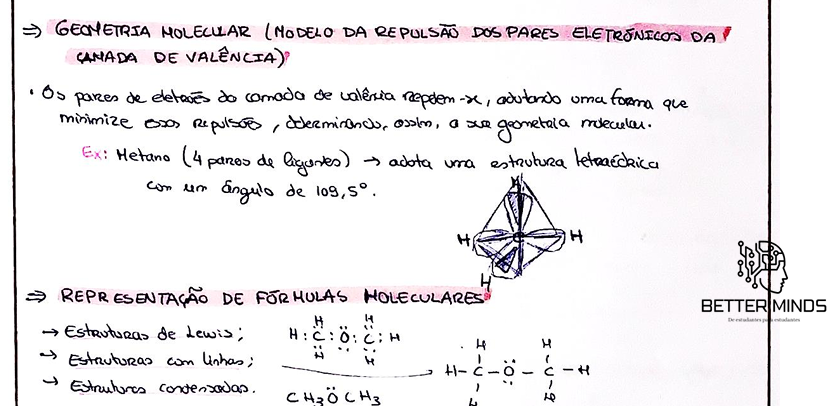 ⇒ GEOMETRIA MOLECULAR (MODELO DA REPULSÃO DOS PARES ELETRÓNICOS DA
CAMADA DE VALÊNCIA)
• Os pares de eletrões da camada de valência repelem-se, adotando uma forma que
minimize essas repulsões, determinando, assim, a sua geometria molecular.
Ex: Metano (4 pares de ligantes) → adota uma estrutura tetraédrica
com um ângulo de 109,5°.
H
H C H
H
BETTER MINDS
De estudantes para estudantes
⇒ REPRESENTAÇÃO DE FÓRMULAS MOLECULARES
→ Estruturas de Lewis;
→ Estruturas com linhas;
→ Estruturas condensadas.
H H
H : C : Ö : C : H
H H
H H
H - C - Ö - C - H
H H
CH3 Ö CH3